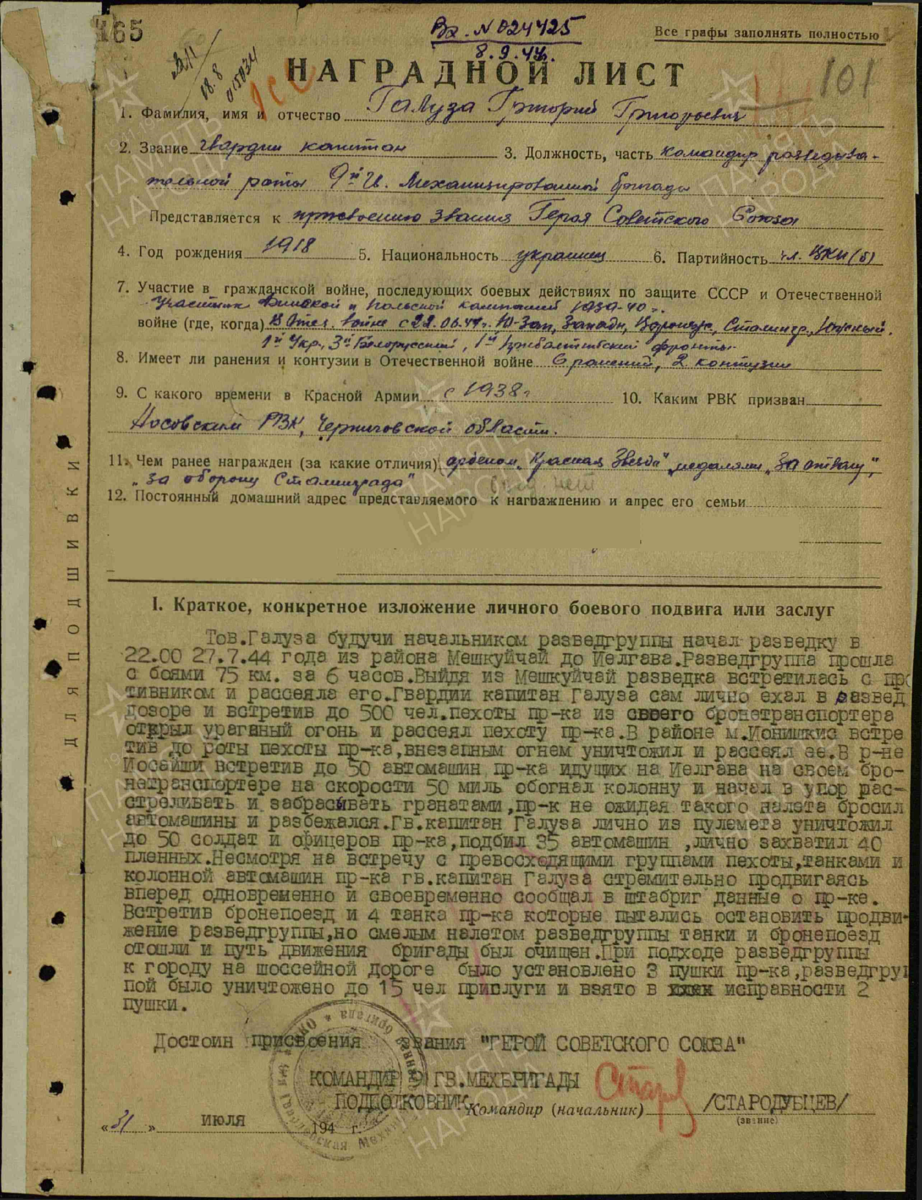 165
Вх. № 024425
8.9.44г.
Все графы заполнять полностью
18.8
101
НАГРАДНОЙ ЛИСТ
1. Фамилия, имя и отчество Галуза Григорий Григорьевич
2. Звание гвардии капитан 3. Должность, часть командир разведыва-
тельной роты 9й Гв. Механизированной бригады
Представляется к присвоению звания Героя Советского Союза
4. Год рождения 1918 5. Национальность украинец 6. Партийность чл. ВКП(б)
7. Участие в гражданской войне, последующих боевых действиях по защите СССР и Отечественной
участник Финской и польской кампаний 1939-40г.
войне (где, когда) В Отеч. войне с 22.06.41г. Ю-Зап, Западн, Воронеж, Сталингр, Южный.
1й Укр, 3й Белорусский, 1й Прибалтийский фронты.
8. Имеет ли ранения и контузии в Отечественной войне 6 ранений, 2 контузии
9. С какого времени в Красной Армии с 1938г 10. Каким РВК призван
Носовским РВК, Черниговской области.
11. Чем ранее награжден (за какие отличия) орденом „Красная Звезда" медалями „За отвагу",
„За оборону Сталинграда"
12. Постоянный домашний адрес представляемого к награждению и адрес его семьи
ДЛЯ ПОДШИВКИ
I. Краткое, конкретное изложение личного боевого подвига или заслуг
Тов.Галуза будучи начальником разведгруппы начал разведку в
22.00 27.7.44 года из района Мешкуйчай до Иелгава.Разведгруппа прошла
с боями 75 км. за 6 часов.Выйдя из Мешкуйчай разведка встретилась с про
тивником и рассеяла его.Гвардии капитан Галуза сам лично ехал в развед
дозоре и встретив до 500 чел.пехоты пр-ка из своего бронетранспортера
открыл ураганый огонь и рассеял пехоту пр-ка.В районе м.Ионишкис встре
тив до роты пехоты пр-ка,внезапным огнем уничтожил и рассеял ее.В р-не
Иосейши встретив до 50 автомашин пр-ка идущих на Иелгава на своем бро-
нетранспортере на скорости 50 миль обогнал колонну и начал в упор рас-
стреливать и забрасывать гранатами,пр-к не ожидая такого налета бросил
автомашины и разбежался.Гв.капитан Галуза лично из пулемета уничтожил
до 50 солдат и офицеров пр-ка,подбил 35 автомашин ,лично захватил 40
пленных.Несмотря на встречу с превосходящими группами пехоты,танками и
колонной автомашин пр-ка гв.капитан Галуза стремительно продвигаясь
вперед одновременно и своевременно сообщал в штабриг данные о пр-ке.
Встретив бронепоезд и 4 танка пр-ка которые пытались остановить продви-
жение разведгруппы,но смелым налетом разведгруппы танки и бронепоезд
отошли и путь движения бригады был очищен.При подходе разведгруппы
к городу на шоссейной дороге было установлено 3 пушки пр-ка,разведгруп
пой было уничтожено до 15 чел прислуги и взято в исправности 2
пушки.
Достоин присвоения звания "ГЕРОЙ СОВЕТСКОГО СОЮЗА"
КОМАНДИР 9 ГВ.МЕХБРИГАДЫ
ПОДПОЛКОВНИК
Командир (начальник) /СТАРОДУБЦЕВ/
(звание)
„31" июля 194 г.
ПАМЯТЬ НАРОДА